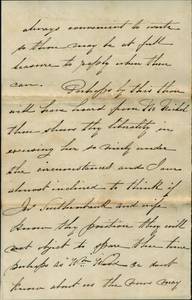 always convenient to write
so thou may be at full
leasure to reply when thou
can. Perhaps by this thou
will have heard from
thou shows thy liberality in
excusing her so nicely under
the circumstances and I am
almost inclined to think if
Jos and wife
know thy position they will
not object to spare thee time
perhaps as Wm dont
know about us the news may